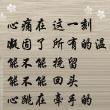 心痛在这一刻
凝固了所有的温
能不能挽留
能不能回头
心跳在牵手的